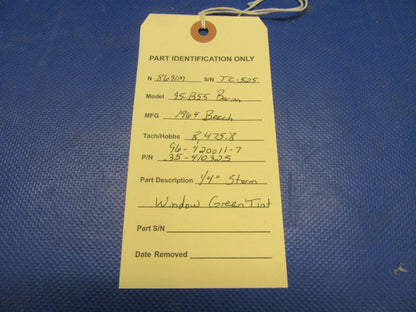 PART IDENTIFICATION ONLY
N 8691M S/N TC-525
Model 95-B55 Baron
MFG 1964 Beech
Tach/Hobbs 8,475.8
96-420011-7
P/N 35-410325
Part Description 1/4" Storm
Window Green Tint
Part S/N
Date Removed